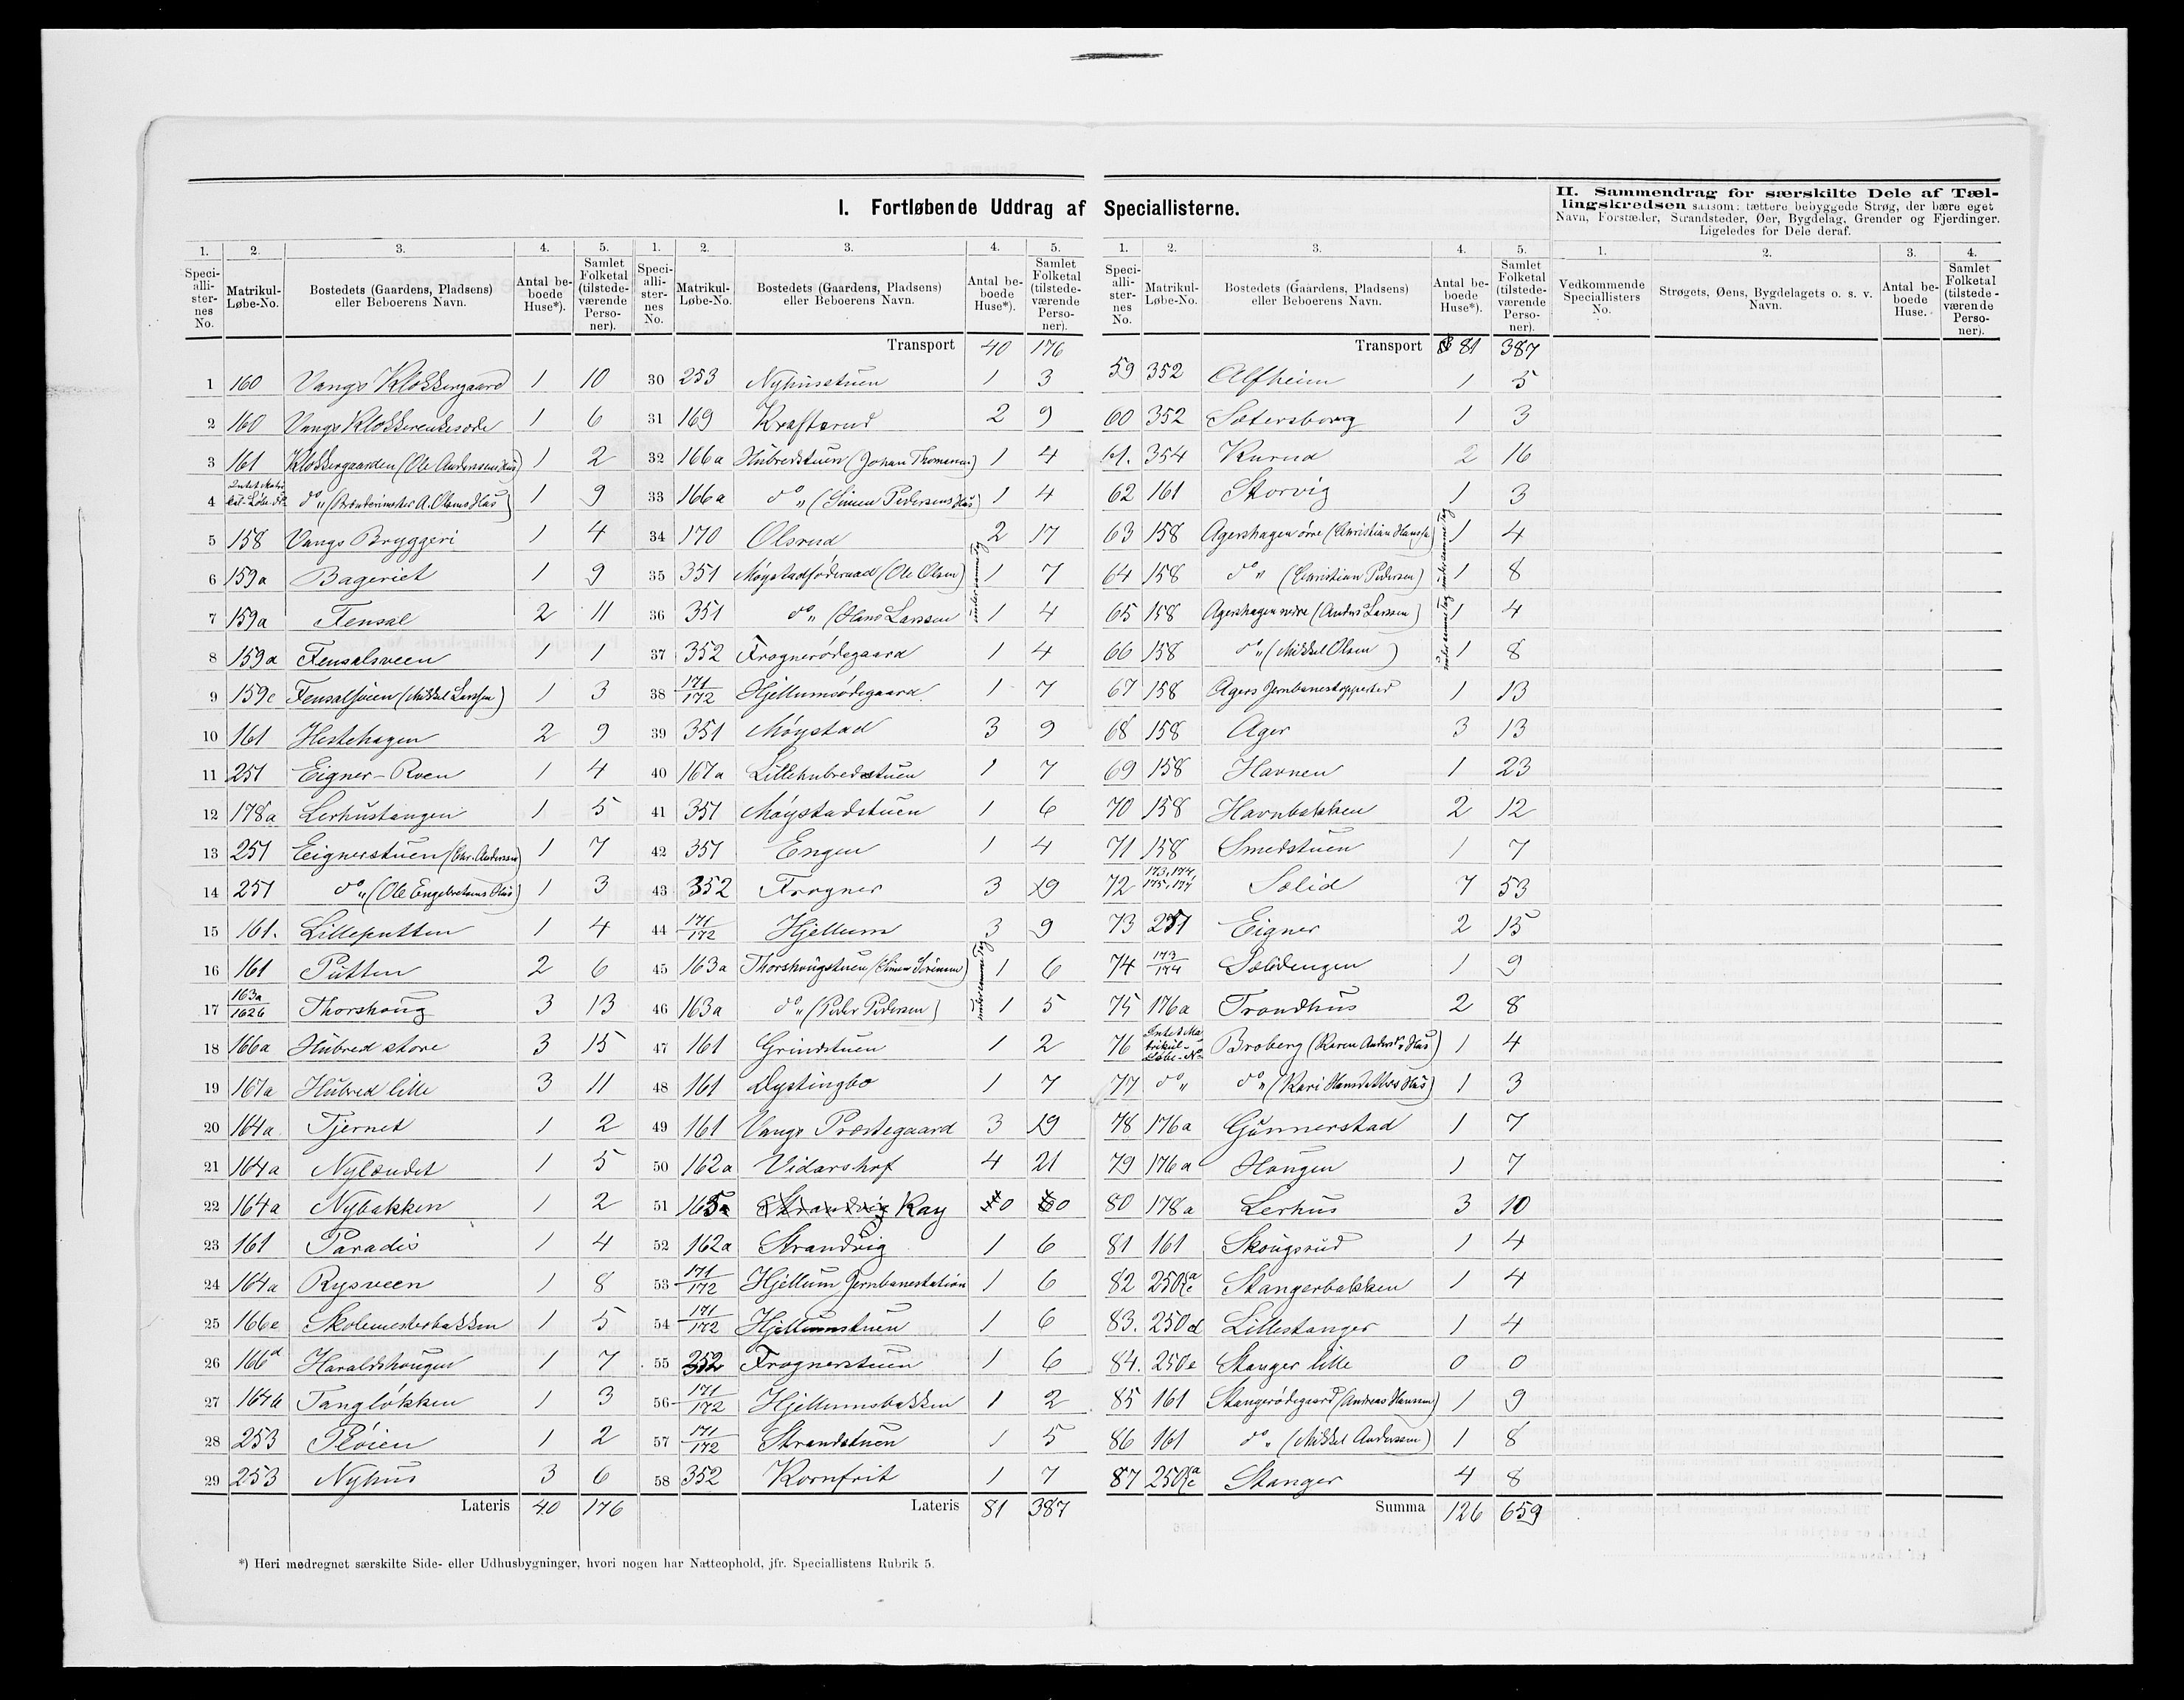 I. Fortløbende Uddrag af Speciallisterne.
II. Sammendrag for særskilte Dele af Tæl-
lingskredsen saasom: tættere bebyggede Strøg, der bære eget
Navn, Forstæder, Strandsteder, Øer, Bygdelag, Grender og Fjerdinger.
Ligeledes for Dele deraf.
1. 2. 3. 4. 5.
Speci-alli-ster-nes No. Matrikul-Løbe-No. Bostedets (Gaardens, Pladsens) eller Beboerens Navn. Antal be-boede Huse*). Samlet Folketal (tilstede-værende Perso-ner).
1 160 Vangs Klokkergaard 1 10
2 160 Vangs Klokkerenkesæde 1 6
3 161 Klokkergaarden (Ole Anderssens Hus) 1 2
4 Intet Matri-kul-Løbe-No do „ (A. Olsens Hus) 1 9
5 158 Vangs Bryggeri 1 4
6 159a Bageriet 1 9
7 159a Fensal 2 11
8 159a Fensalsveen 1 1
9 159c Fensalsveen (Mikkel Larssen) 1 3
10 161 Hestehagen 2 9
11 251 Eigner-Roen 1 4
12 178a Lerhustangen 1 5
13 251 Eignerstuen (Chr. Anderssen) 1 7
14 251 do „ (Ole Engebretsens Hus) 1 3
15 161. Lilleputten 1 4
16 161 Putten 2 6
17 163a/162b Thorshoug 3 13
18 166a Hubred store 3 15
19 167a Hubred lille 3 11
20 164a Tjernet 1 2
21 164a Nylændet 1 5
22 164a Nybakken 1 2
23 161 Paradis 1 4
24 164a Rysveen 1 8
25 166e Skolemesterbakken 1 5
26 166d Haraldshougen 1 7
27 164b Tangløkken 1 3
28 253 Pløien 1 2
29 253 Nyhus 3 6
Lateris 40 176
1. 2. 3. 4. 5.
Speci-alli-ster-nes No. Matrikul-Løbe-No. Bostedets (Gaardens, Pladsens) eller Beboerens Navn. Antal be-boede Huse*). Samlet Folketal (tilstede-værende Perso-ner).
Transport 40 176
30 253 Nyhusstuen 1 3
31 169 Krafterud 2 9
32 166a Hubredstuen (Johan Thomassen) 1 4
33 166a do „ (Simen Pedersens Hus) 1 4
34 170 Olsrud 2 17
35 351 Møystadføderaad (Ole Olsen) 1 7
under samme Tag
36 351 do „ (Hans Larssen 1 4
37 352 Frognerødegaard 1 4
38 171/172 Hjellumsødegaard 1 7
39 351 Møystad 3 9
40 167a Lillehubredstuen 1 7
41 351 Møystadstuen 1 6
42 351 Engen 1 4
43 352 Frogner 3 19
44 171/172 Hjellum 3 9
45 163a Thorshougstuen (Simen Simensen) 1 6
under samme Tag
46 163a do „ (Peder Pedersen) 1 5
47 161 Grindstuen 1 2
48 161 Dystingbo 1 7
49 161 Vangs Præstegaard 3 19
50 162a Vidarshof 4 21
51 165a Strandvig Kay 0 0
52 162a Strandvig 1 6
53 171/172 Hjellum Jernbanestation 1 6
54 171/172 Hjellumstuen 1 6
55 352 Frognerstuen 1 6
56 171/172 Hjellumsbakken 1 2
57 171/172 Strandstuen 1 5
58 352 Kornfrit 1 7
Lateris 81 387
1. 2. 3. 4. 5.
Speci-alli-ster-nes No. Matrikul-Løbe-No. Bostedets (Gaardens, Pladsens) eller Beboerens Navn. Antal be-boede Huse*). Samlet Folketal (tilstede-værende Perso-ner).
Transport 81 387
59 352 Alfheim 1 5
60 352 Sætersborg 1 3
61. 354 Kurud 2 16
62 161 Storvig 1 3
63 158 Agershagen øvre (Christian Hanss.) 1 4
under samme Tag
64 158 do „ (Christian Pedersen) 1 8
65 158 Agershagen nedre (Anders Larssen) 1 4
under samme Tag
66 158 do „ (Mikkel Olsen) 1 8
67 158 Agers Jernbanestoppested 1 13
68 158 Ager 3 13
69 158 Havnen 1 23
70 158 Havnbakken 2 12
71 158 Smedstuen 1 7
72 173, 174, 175, 177 Sælid 7 53
73 251 Eigner 2 15
74 173/174 Sælidengen 1 9
75 176a Trondhus 2 8
76 Intet Ma-trikul-Løbe-No Broberg (Karen Andersd.s Hus) 1 4
77 do „ do „ (Kari Hansdatters Hus) 1 3
78 176a Gunnerstad 1 7
79 176a Hougen 1 7
80 178a Lerhus 3 10
81 161 Skougsrud 1 4
82 250a/c Stangerbakken 1 4
83. 250d Lillestanger 1 4
84. 250e Stanger lille 0 0
85 161 Stangerødegaard (Andreas Hanssen) 1 9
86 161 do „ (Mikkel Anderssen) 1 8
87 250a/c Stanger 4 8
Summa 126 659
1. 2. 3. 4.
Vedkommende Speciallisters No. Strøgets, Øens, Bygdelagets o. s. v. Navn. Antal be-boede Huse. Samlet Folketal (tilstede-værende Perso-ner).
*) Heri medregnet særskilte Side- eller Udhusbygninger, hvori nogen har Natteophold, jfr. Speciallistens Rubrik 5.